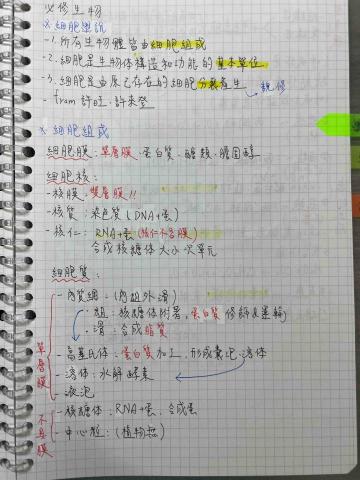 必修生物
※ 細胞學說
-1. 所有生物體皆由細胞組成
-2. 細胞是生物體構造和功能的基本單位
-3. 細胞是由原已存在的細胞分裂產生
- from 許旺、許來登
※ 細胞組成
細胞膜：單層膜、蛋白質、醣類、膽固醇
細胞核：
- 核膜：雙層膜!!
- 核質：染色質 (DNA+蛋)
- 核仁：RNA+蛋 (核仁不含膜)
合成核糖體大小次單元
細胞質：
- 內質網：(內粗外滑)
·粗：核糖體附著, 蛋白質修飾&運輸
·滑：合成脂質
- 高基氏體：蛋白質加工, 形成囊泡、溶體
- 溶體：水解酵素
- 液泡
單層膜
- 核糖體：RNA+蛋, 合成蛋
- 中心粒：(植物無)
不具膜